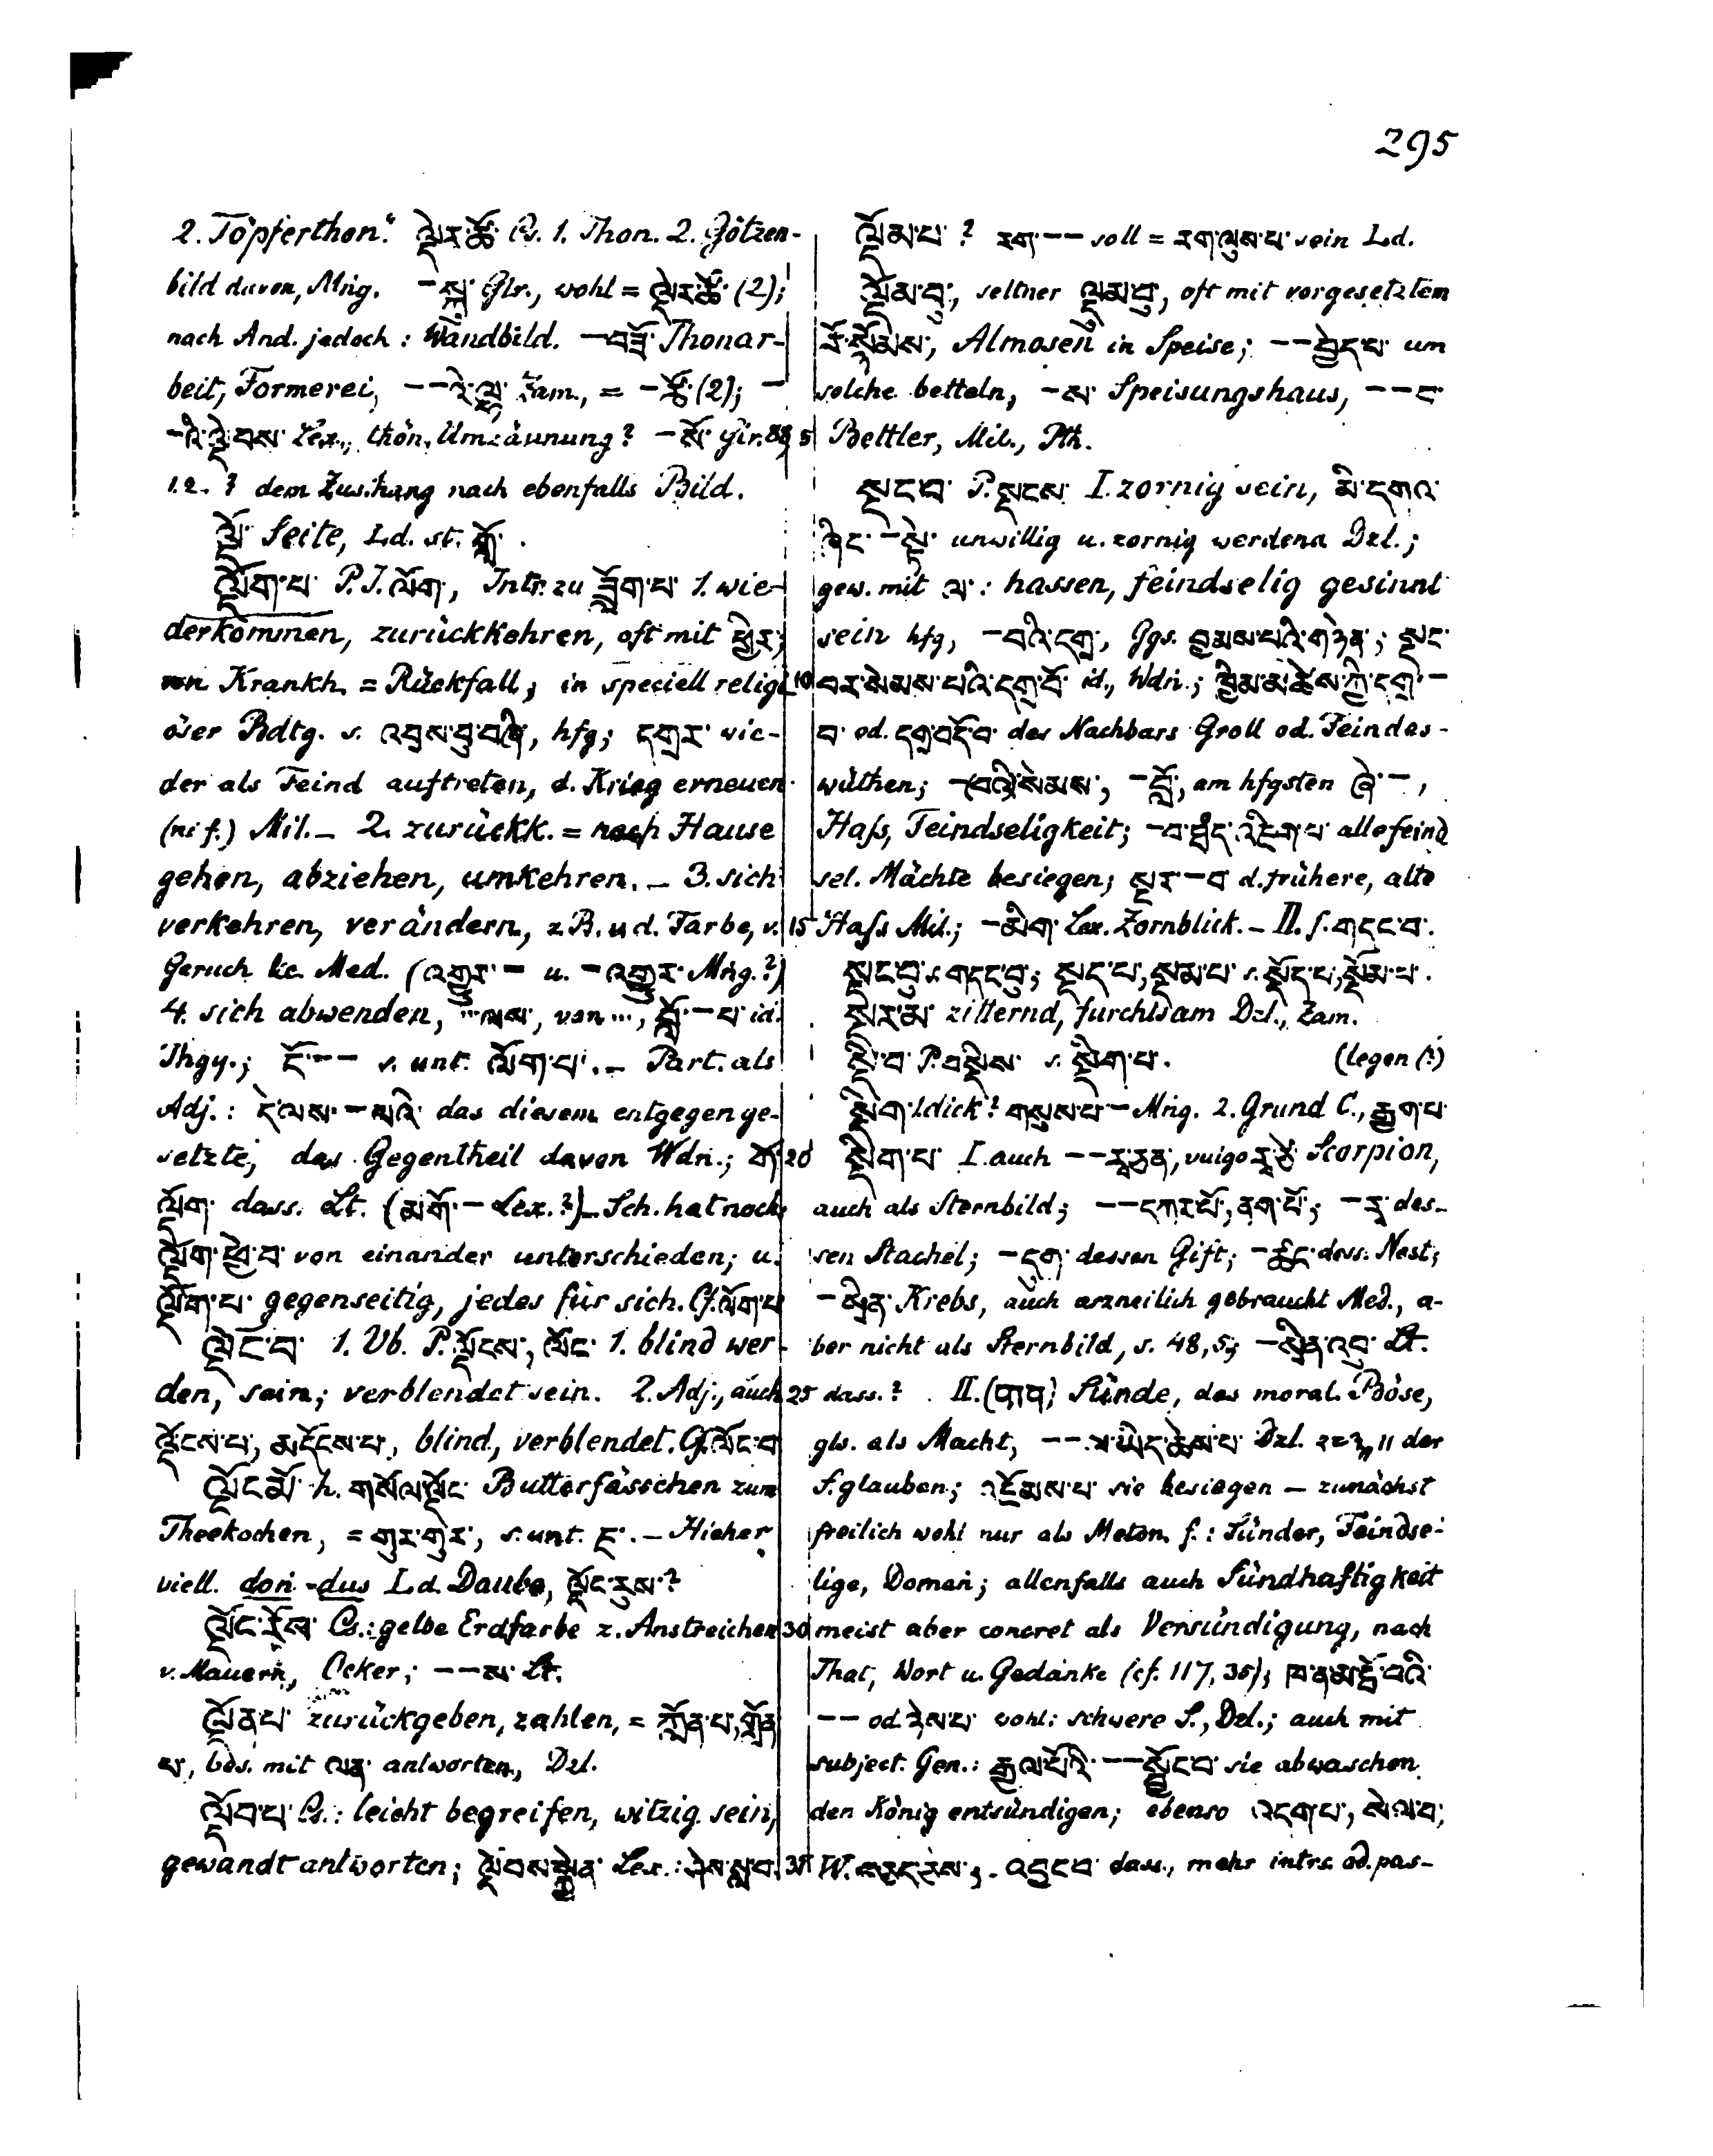 295
2. Töpferthon." ལྡེར་ཚོ་ Cs. 1. Thon. 2. Götzen-
bild davon, Mṅg. –སྐུ་ Glr., wohl = ལྡེར་ཚོ་ (2);
nach And. jedoch: Wandbild. –བཟོ་ Thonar-
beit, Formerei, ––
beit, (2); –
Lex., thön. Umzäunung? –སོ་ Glr. 88,
12.? dem Zus.hang nach ebenfalls Bild.
ལྡོ་ Seite, Ld. st.
ལྡོག་པ་ P.I. ལོག, Intr. zu ཟློག་པ་ 1. wie-
derkommen, zurückkehren, oft mit ཕྱིར;
von Krankh. = Rückfall; in speciell religi-
öser Bdtg. s. hfg; དགྲར་ wie-
der als Feind auftreten, d. Krieg erneuen
(ni f.) Mil. – 2. zurückk. = nach Hause
gehen, abziehen, umkehren. – 3. sich
verkehren, verändern, z.B. u d. Farbe, v.
Geruch &c. Med. (འགྱུར་ – u. –འགྱུར་ Mṅg.?)
4. sich abwenden, ...ལས, von ..., བློ་–པ་ id.
Thgy.; ངོ་–– s. unt. ལོག་པ་. – Part. als
Adj.: དེ་ལས་–པའི་ das diesem entgegenge-
setzte, das Gegentheil davon Wdṅ.; གོ་
ལྡོག་ dass. Lt. (མགོ་– Lex.?) – Sch. hat noch
ལྡོག་ཕྱེ་བ་ von einander unterschieden; u.
ལྡོག་པ་ gegenseitig, jedes für sich. Cf. ལོག་པ
ལྡོང་བ་ 1. Vb. P. ལྡོངས, ལོང་ 1. blind wer-
den, sein; verblendet sein. 2. Adj., auch
ལྡོངས་པ, མདོངས་པ, blind, verblendet. Cf. ལོང་བ
ལྡོང་མོ་ h. གསོལ་ལྡོང་ Butterfässchen zum
Theekochen, = གུར་གུར, s. unt. ཇ་. – Hieher
viell. doṅ-dus Ld. Daube, ལྡོང་རུས་?
ལྡོང་རོས་ Cs.: gelbe Erdfarbe z. Anstreichen
v. Mauern, Ocker; ––ས་ Lt.
ལྡོན་པ་ zurückgeben, zahlen, = ཀློན་པ, གློན
པ, bes. mit ལན་ antworten, Dzl.
ལྡོབ་པ་ Cs.: leicht begreifen, witzig sein,
gewandt antworten; Lex.:
ལྡོམ་པ་? རག་–– soll = རག་ལུས་པ་ sein Ld.
ལྡོམ་བུ, seltner ལྡུམ་བུ, oft mit vorgesetztem
རོ་སྙོམས, Almosen in Speise; ––བྱེད་པ་ um
solche betteln, –ས་ Speisungshaus, ––པ་
5 Bettler, Mil., Pth.
སྡང་བ་ P. སྡངས་ I. zornig sein, མི་དགའ་
ཞིང་–སྟེ་ unwillig u. zornig werdend Dzl.;
gew. mit ལ་: hassen, feindselig gesinnt
sein hfg, –བའི་དགྲ, Ggs. བྱམས་པའི་གཉེན; སྡང་
10 བར་སེམས་པའི་དགྲ་བོ་ id., Wdṅ.; ཁྱིམ་མཚེས་ཀྱི་དགྲ་–
བ་ od. དགྲ་བདོ་བ་ des Nachbars Groll od. Feindes-
wüthen; –བའི་སེམས, –བློ, am hfgsten ཞེ་–,
Haſs, Feindseligkeit; alle feind
sel. Mächte besiegen; སྔར་–བ་ d. frühere, alte
15 Haſs Mil.; –མིག་ Lex. Zornblick. – II. s. གདང་བ་.
སྡང་བུ་ s. གདང་བུ; སྡད་པ, སྡམ་པ་ s. སྡོད་པ, སྡོམ་པ་.
སྡར་མ་ zitternd, furchtsam Dzl., Zam.
སྡི་བ་ P. བསྡིས་ s. སྡིག་པ་. (legen (?)
སྡིག་ 1. dick? གསུས་པ་– Mṅg. 2. Grund C., རྒྱག་པ་
20 སྡིག་པ་ I. auch ––ར྄་ཙན, vulgo Scorpion,
auch als Sternbild; ––དཀར་པོ, ནག་པོ; –རྭ་ des-
sen Stachel; –དུག་ dessen Gift; –ཚང་ dess. Nest;
–སྲིན་ Krebs, auch arzneilich gebraucht Med., a-
ber nicht als Sternbild, s. 48,5; –སྲིན་འབུ་ Lt.
25 dass.? II. (पाप) Sünde, das moral. Böse,
gls. als Macht, ––ལ་ཡིད་ཆེས་པ་ Dzl. 11 der
S. glauben; འཇོམས་པ་ sie besiegen – zunächst
freilich wohl nur als Meton. f.: Sünder, Feindse-
lige, Domen; allenfalls auch Sündhaftigkeit
30 meist aber concret als Versündigung, nach
That, Wort u. Gedanke (cf. 117, 35); ཁ་ན་མ་ཐོ་བའི་
–– od. wohl: schwere S., Dzl.; auch mit
subject. Gen.: རྒྱལ་པོའི་––སྦྱོང་བ་ sie abwaschen
den König entsündigen; ebenso འདག་པ, སེལ་བ,
35 W. འབྱང་བ་ dass., mehr intrs. od. pas-